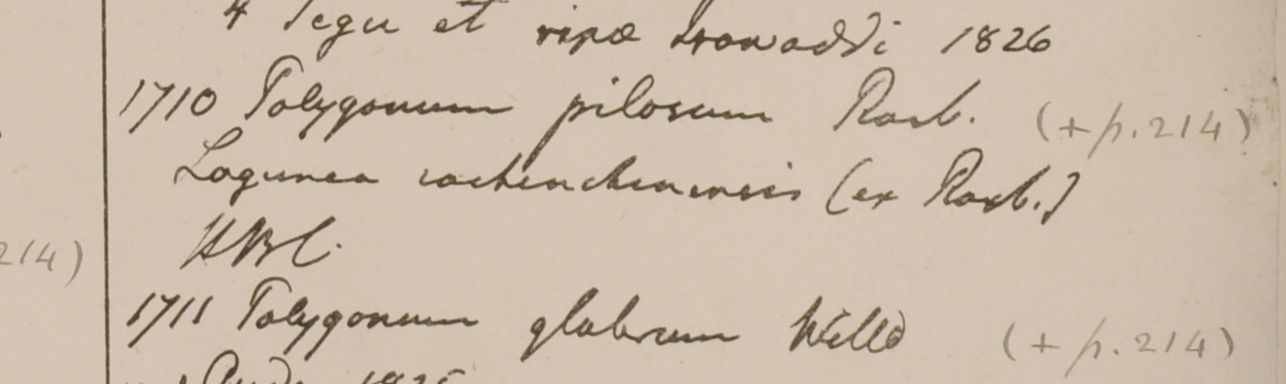 4 Segu et ripæ Irowaddi 1826
1710 Polygonum pilosum Roxb. (+ p. 214)
Lagunea cochinchinensis (ex Roxb.)
HBC.
214)
1711 Polygonum glabrum Willd (+ p. 214)
1825